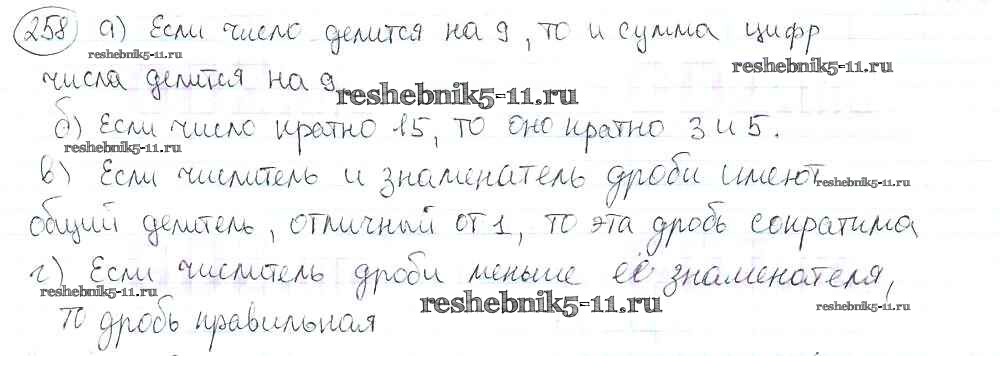 258 а) Если число делится на 9, то и сумма цифр
reshebnik5-11.ru
reshebnik5-11.ru
числа делится на 9
reshebnik5-11.ru
б) Если число кратно 15, то оно кратно 3 и 5.
reshebnik5-11.ru
в) Если числитель и знаменатель дроби имеют
reshebnik5-11.ru
общий делитель, отличный от 1, то эта дробь сократима
г) Если числитель дроби меньше её знаменателя,
reshebnik5-11.ru
reshebnik5-11.ru
reshebnik5-11.ru
то дробь правильная